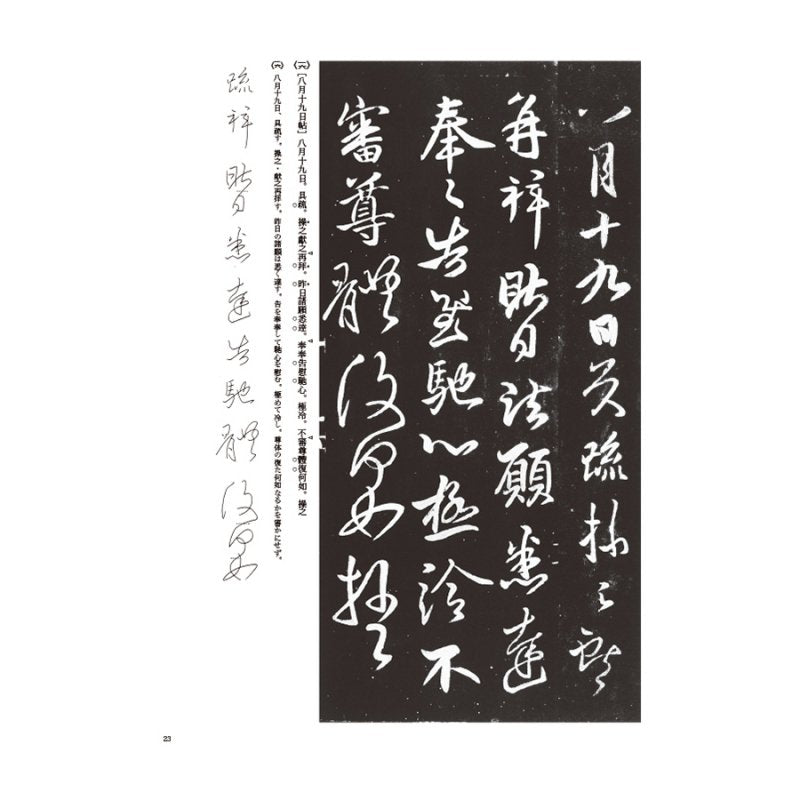 八月十九日具疏操之獻之
再拜昨日諸願悉達
奉々告慰馳心極冷不
審尊體復何如操之
(六)［八月十九日帖］八月十九日。具疏。操之獻之再拜。昨日諸願悉達。奉奉告慰馳心。極冷。不審尊體復何如。操之
(六)八月十九日、具疏す。操之・獻之再拝す。昨日の諸願は悉く達す。告を奉奉して馳心を慰む。極めて冷し。尊体の復た何如なるかを審かにせず。
疏拜昨日悉達告馳體復何如
23